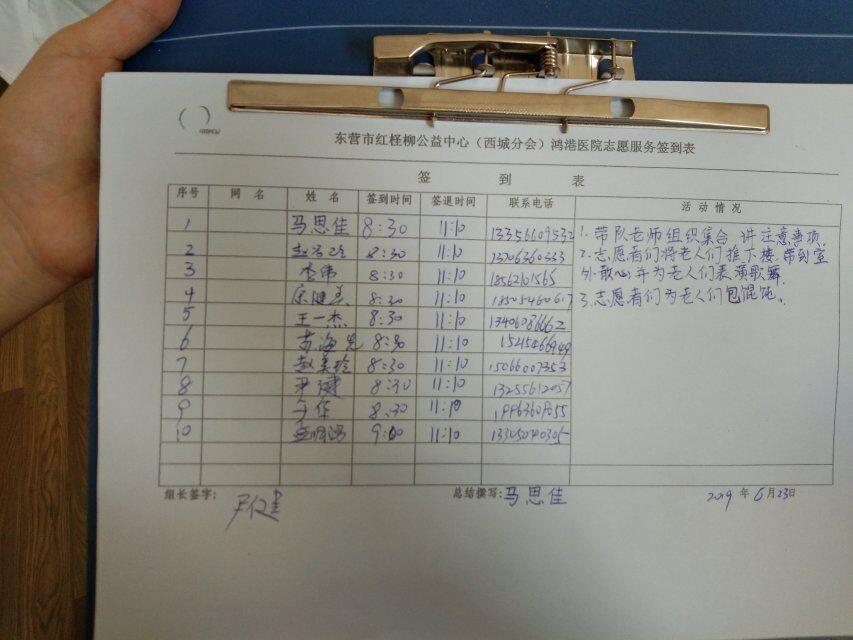 东营市红柽柳公益中心（西城分会）鸿港医院志愿服务签到表
签 到 表
序号 网 名 姓 名 签到时间 签退时间 联系电话 活 动 情 况
1 马思佳 8:30 11:10
2 8:30 11:10
3 李伟 8:30 11:10
4 8:30 11:10
5 王一杰 8:30 11:10 13406086662
6 8:30 11:10
7 赵美玲 8:30 11:10 15066007353
8 尹健 8:30 11:10
9 8:30 11:10
10 9:00 11:10
1. 带队老师组织集合 讲注意事项.
2. 志愿者们将老人们推下楼.带到室
外散心并为老人们表演歌舞.
3. 志愿者们为老人们包馄饨.
组长签字: 尹健 总结撰写: 马思佳 2019 年 6 月 23 日